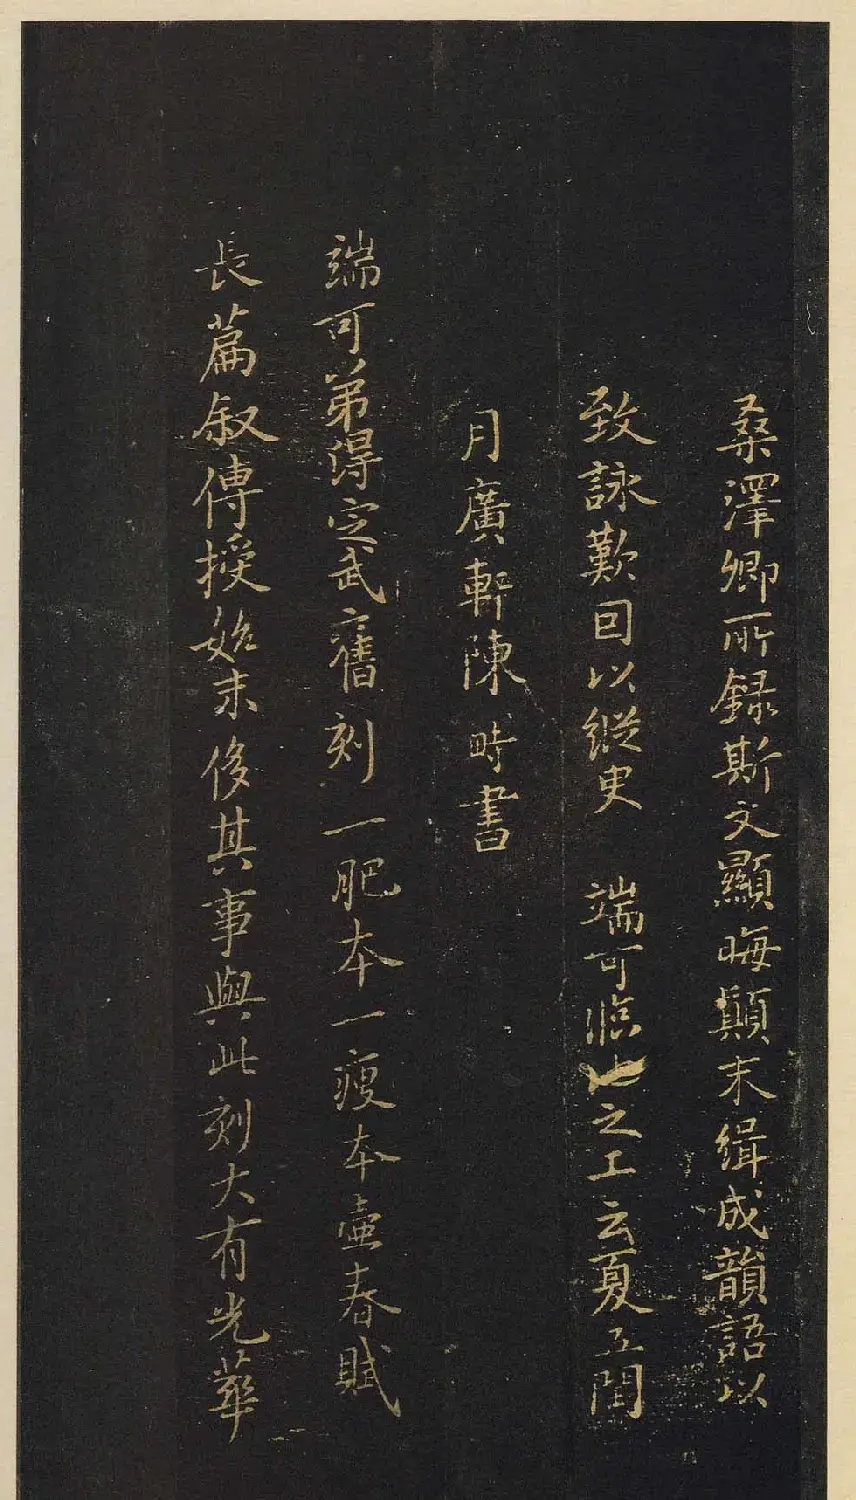 桑澤卿所録斯文顯晦顛末緝成韻語以
致詠歎回以縱史 端可臨池之工云夏五閏
月廣軒陳時書
端可弟得定武舊刻一肥本一瘦本壷春賦
長篇叙傳授始末侈其事與此刻大有光華